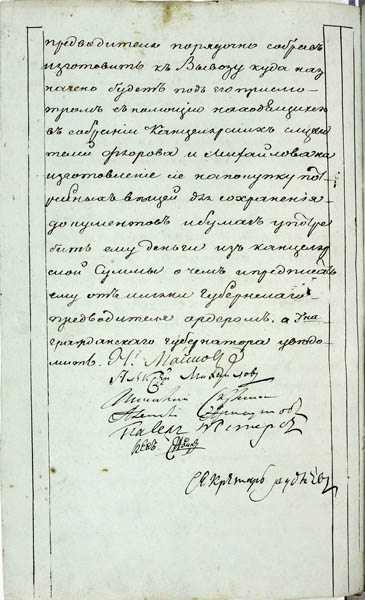 предводителя порядочно собравъ
изготовить къ вывозу куда наз
начено будетъ подъ его присмо
тромъ съ помощию находящихся
въ собрании канцелярскихъ служи
телей Фёдорова и Михайлова на
изготовление же на покупку пот
ребныхъ вещей для сохранения
документовъ и бумагъ употре
бить ему деньги изъ канцеляр
ской суммы о чемъ и предписать
ему отъ имени губернскаго
предводителя ордеромъ. а
гражданскаго губернатора увѣдо
мить.
Алексѣй Михайловъ
Павелъ
Секретарь